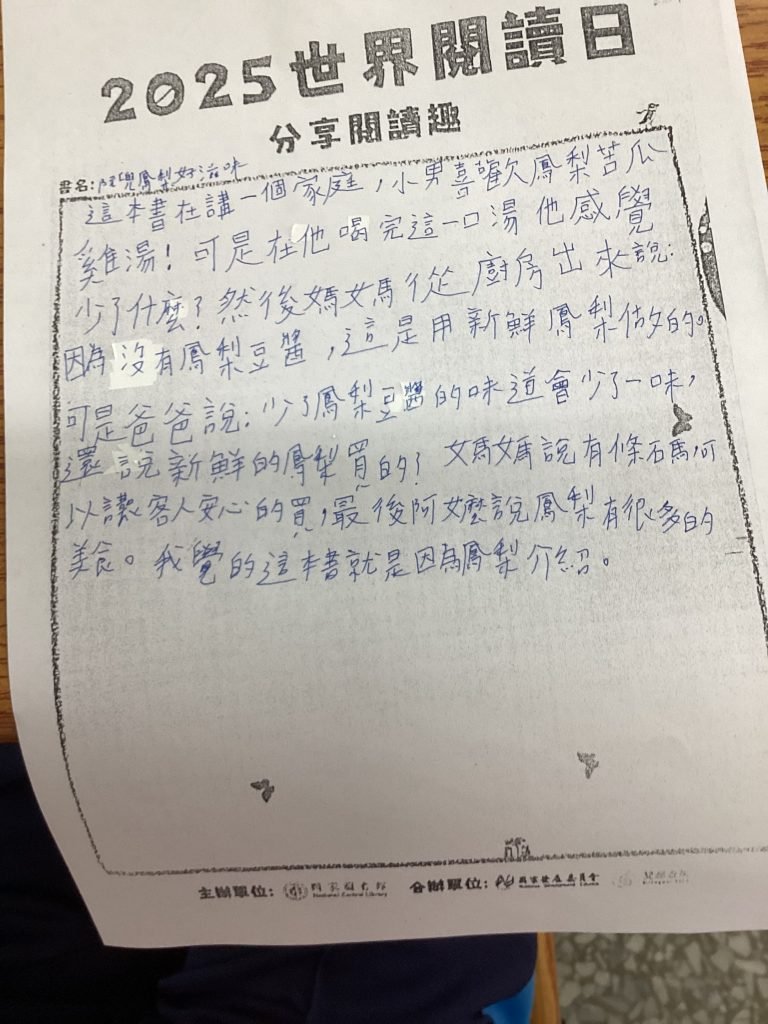 2025世界閱讀日
分享閱讀趣
書名:阿嬤鳳梨好滋味
這本書在講一個家庭，小男喜歡鳳梨苦瓜
雞湯!可是在他喝完這一口湯他感覺
少了什麼?然後媽媽從廚房出來說:
因為沒有鳳梨豆醬，這是用新鮮鳳梨做的。
可是爸爸說:少了鳳梨豆醬的味道會少了一味，
還說新鮮的鳳梨買的?媽媽說有條碼,可
以讓客人安心的買,最後阿嬤說鳳梨有很多的
美食。我覺的這本書就是因為鳳梨介紹。
主辦單位: 國家圖書館 National Central Library 合辦單位: 國家發展委員會